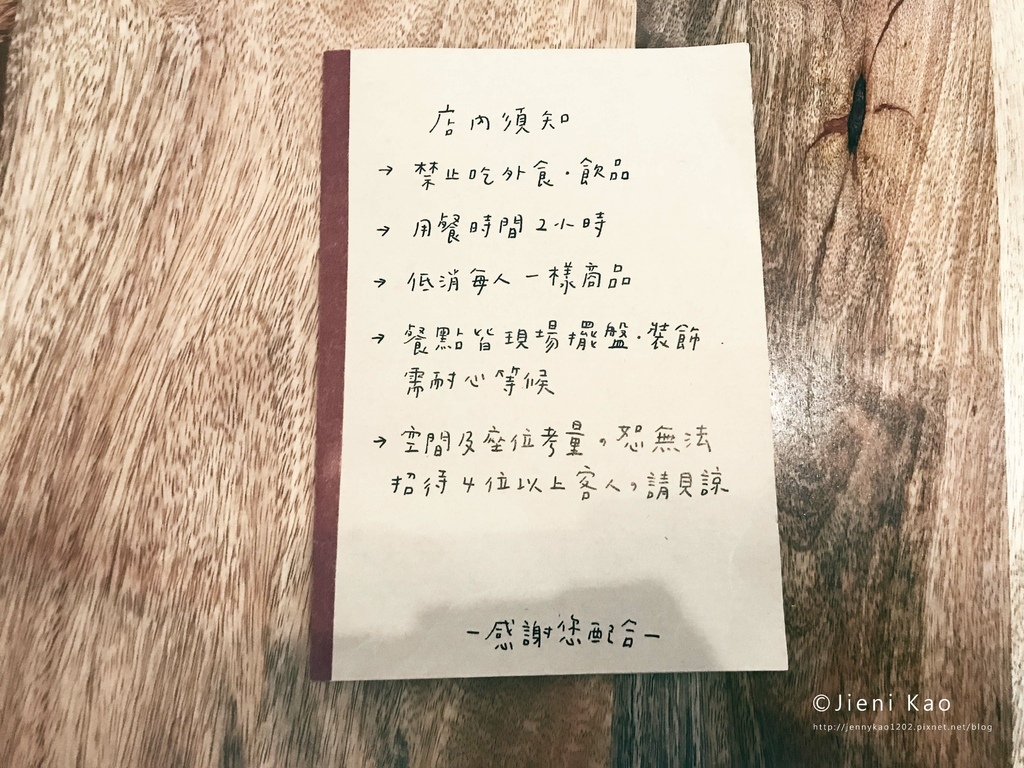 店內須知
→ 禁止吃外食·飲品
→ 用餐時間2小時
→ 低消每人一樣商品
→ 餐點皆現場擺盤·裝飾
需耐心等候
→ 空間及座位考量,恕無法
招待4位以上客人,請見諒
-感謝您配合-
©Jieni Kao
http://jennykao1202.pixnet.net/blog